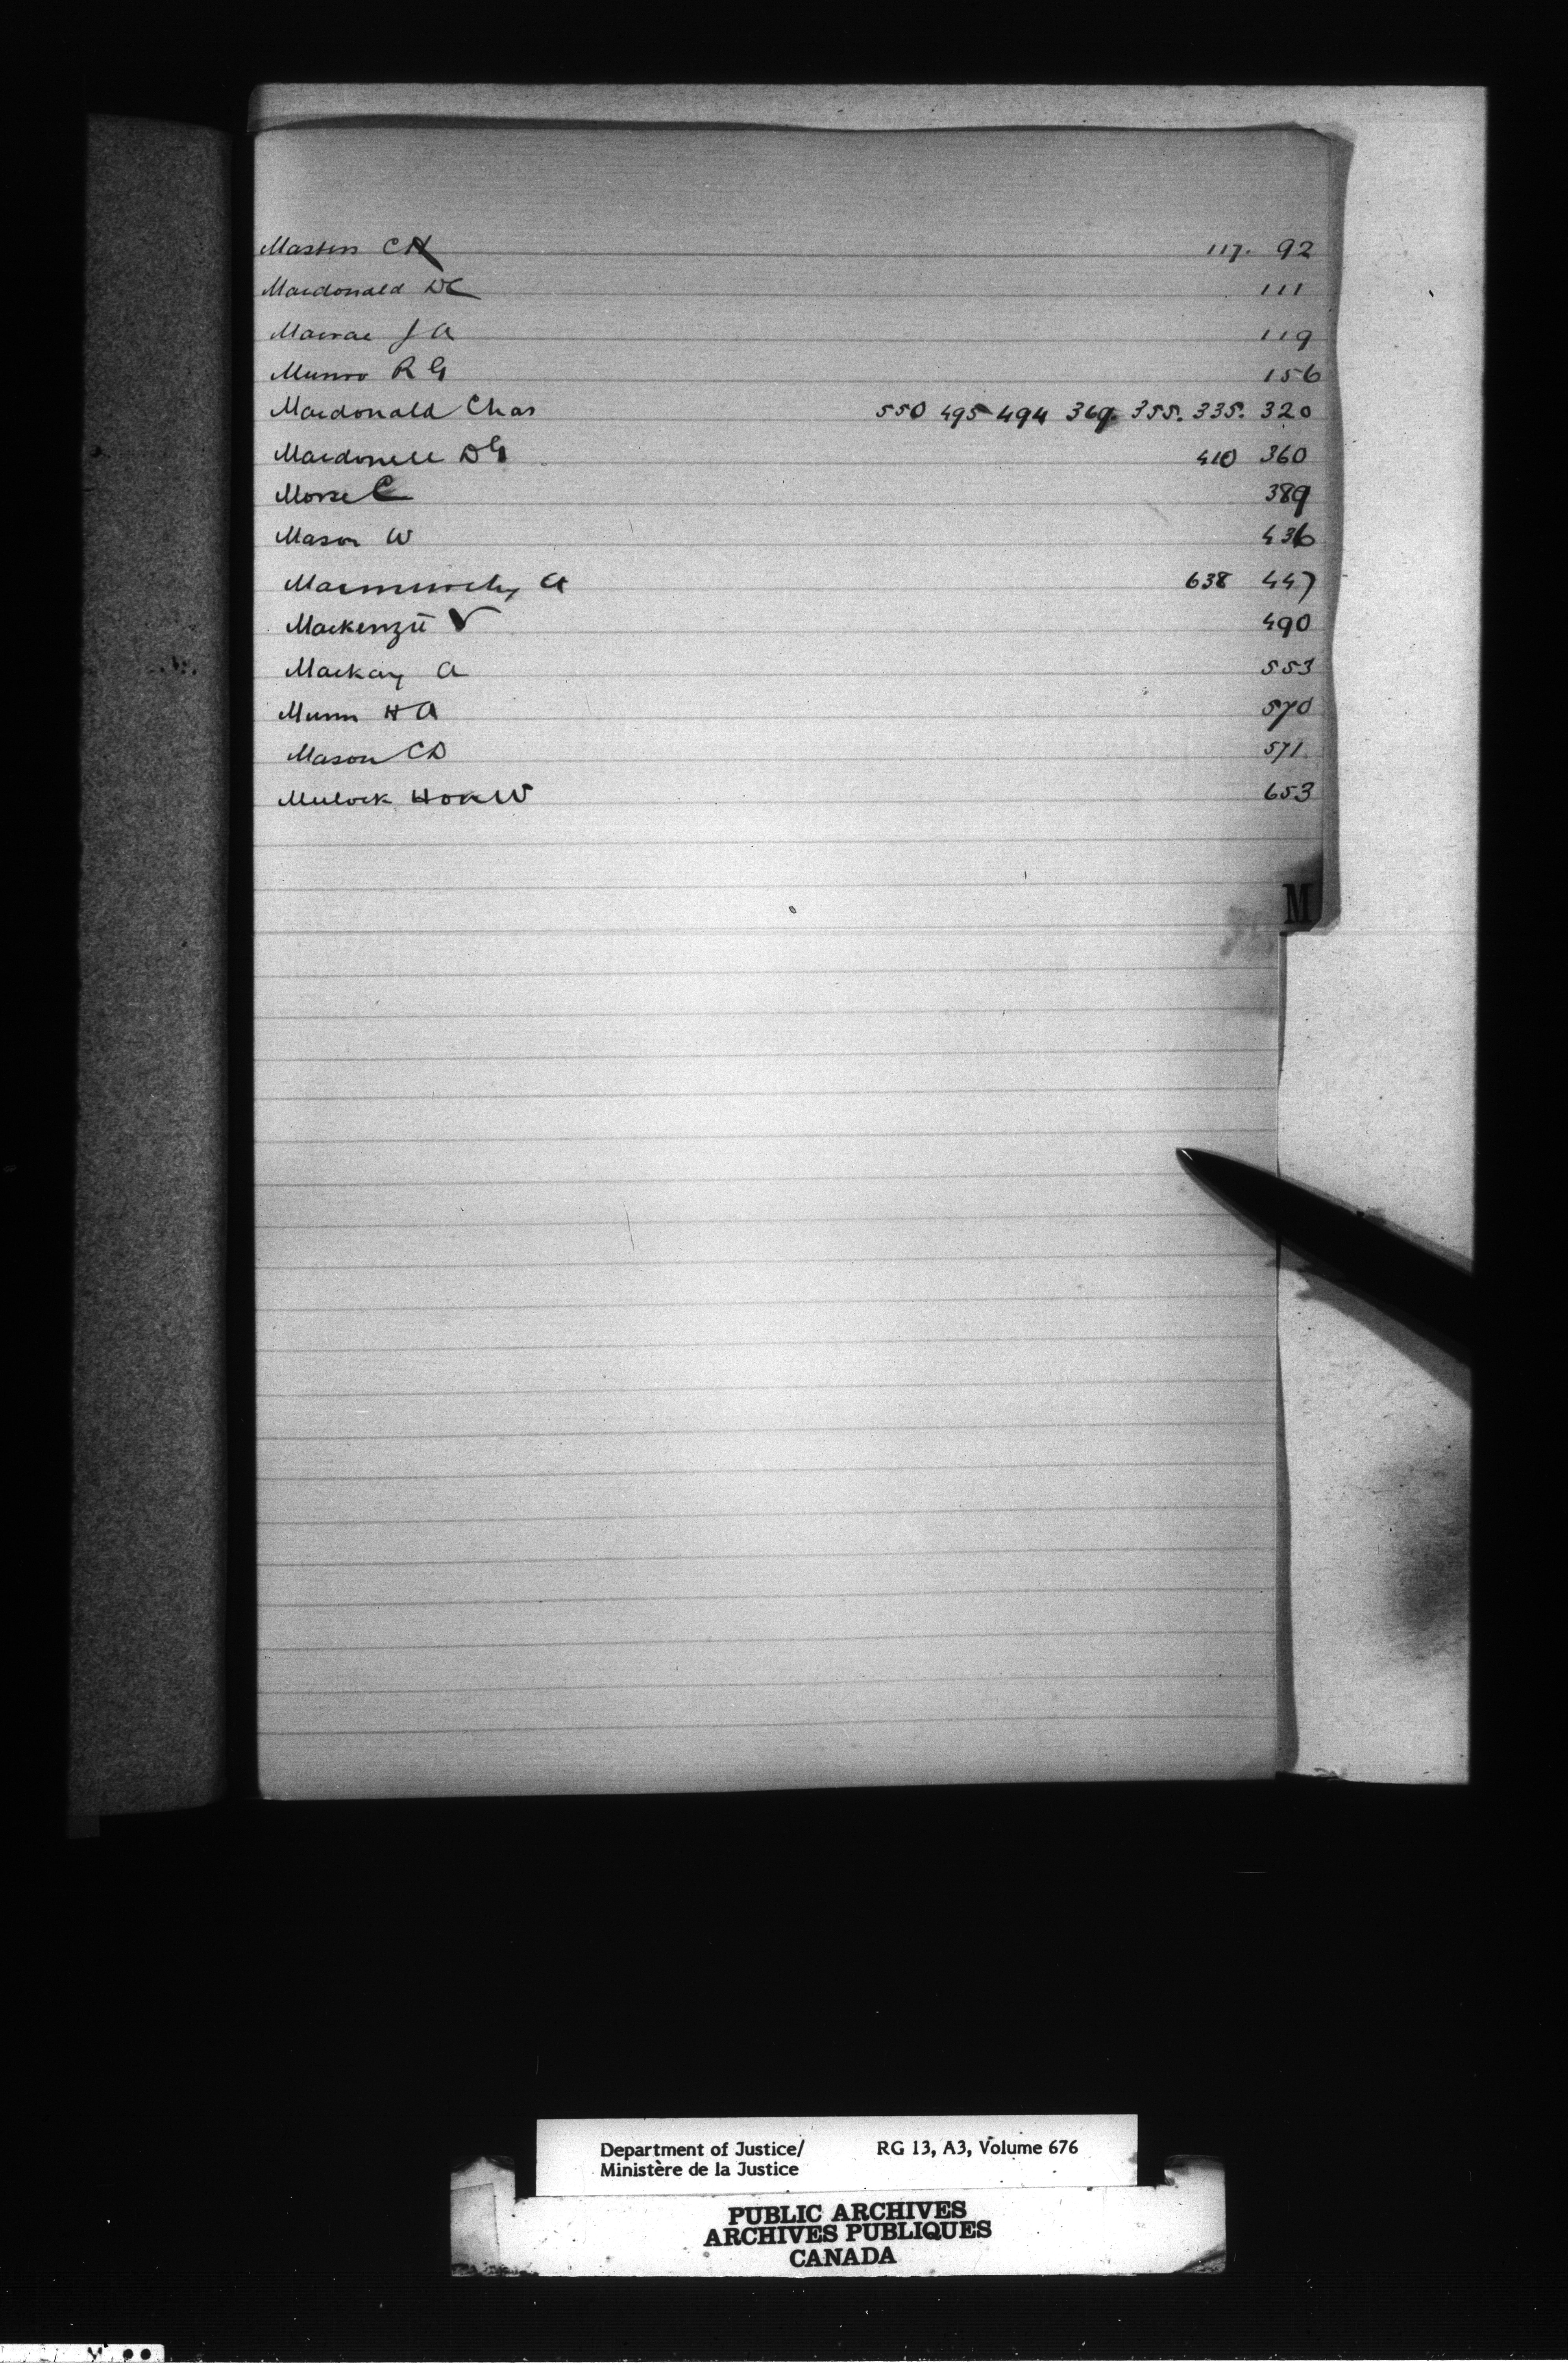 Masters CH 117. 92
Macdonald DC 111
Macrae J A 119
Munro R G 156
Macdonald Chas 550 495 494 369. 355. 335. 320
Macdonell DG 410 360
Morse C 389
Mason W 436
Macmurchy A 638 447
Mackenzie V 490
Mackay A 553
Munn H A 570
Mason CD 571
Mulock Hon W 653
M
Department of Justice/ RG 13, A3, Volume 676
Ministère de la Justice
PUBLIC ARCHIVES
ARCHIVES PUBLIQUES
CANADA